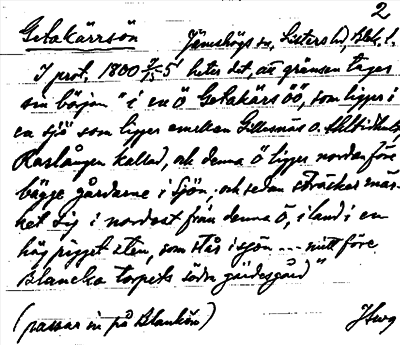 2
Getakärrsön Jämshögs sn, Listers hd, Blek. l.
I prot. 1800 5/15 heter det, att gränsen tages
sin början "i en ö Getakärs öö, som ligger i
en sjö som ligger emellan Gillesnäs o.
Raslången kallad, och denna ö ligger norden före
bägge gårdarne i sjön, och sedan sträcker mär-
ket sig i nordost från denna ö, i land i en
hög pigget sten, som står i sjön --- mitt före
Blancka torpets södra gärdesgård"
(passar in på Blankön) Hwg